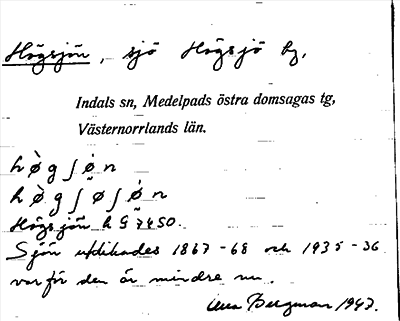 Högsjön, sjö Högsjö by,
Indals sn, Medelpads östra domsagas tg,
Västernorrlands län.
hø̀gʃǿ̣n
hø̀gʃøʃǿ̣n
Högsjön h G 7450.
Sjön utdikades 1867-68 och 1935-36
varför den är mindre nu.
Bergman 1947.